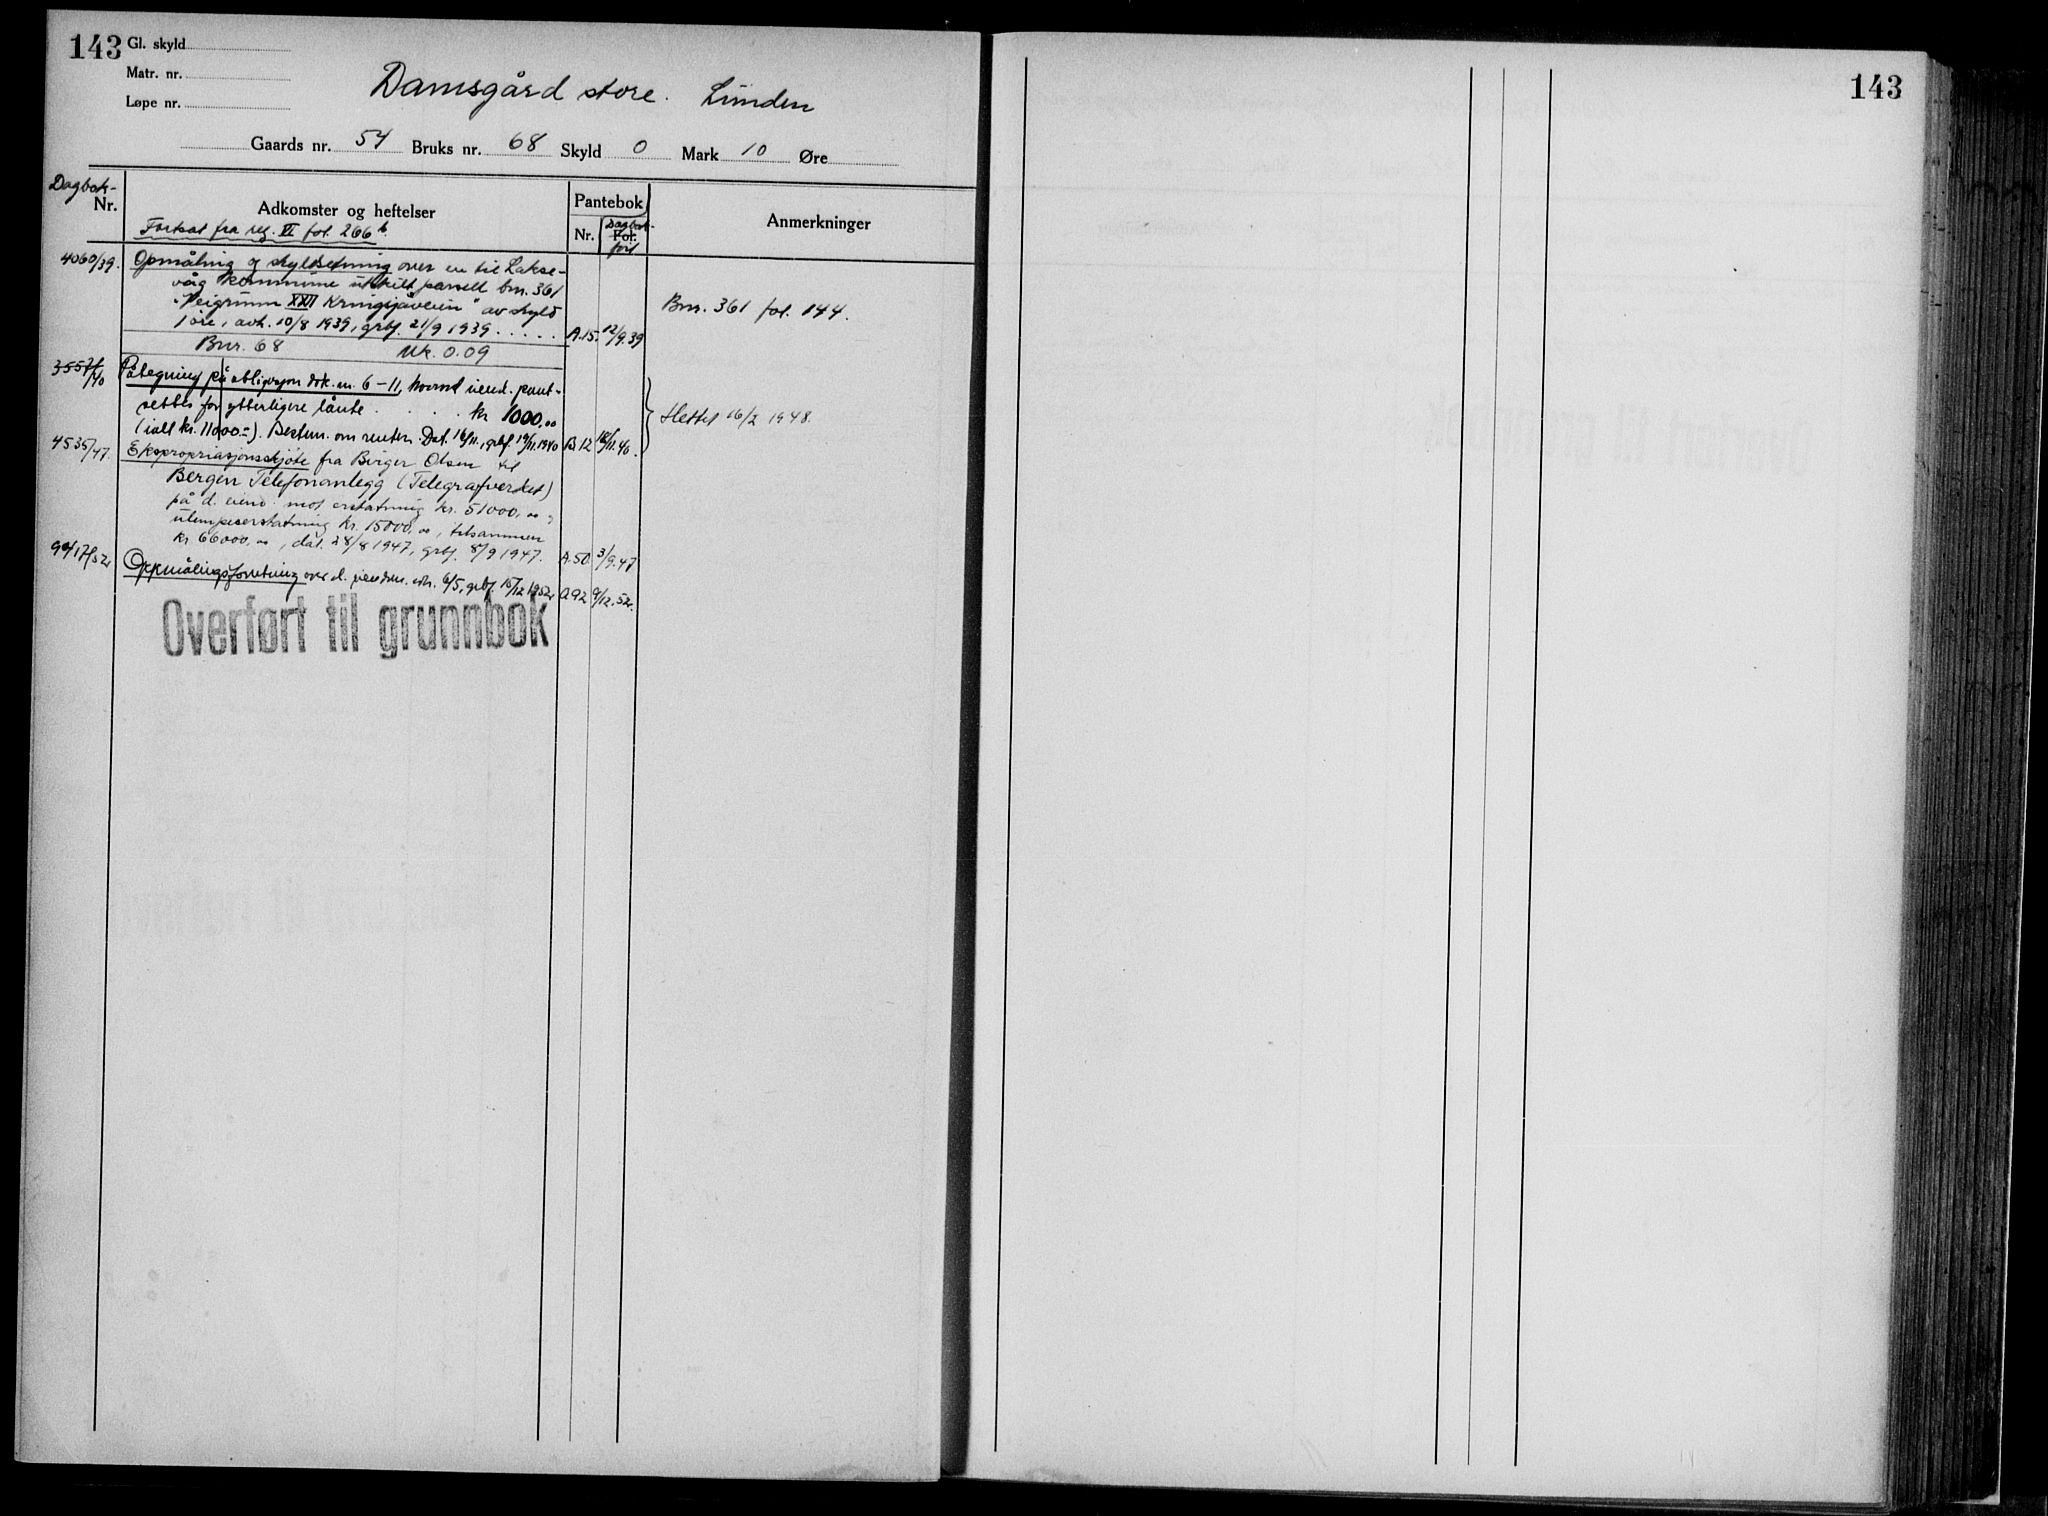 143
Gl. skyld
Matr. nr.
Løpe nr.
Damsgård store. Linden
Gaards nr. 54 Bruks nr. 68 Skyld 0 Mark 10 Øre
Dagbok-
Nr.
Adkomster og heftelser
Pantebok
Anmerkninger
Fortsat fra reg. VI fol. 266 b.
Nr.
Dagbok-
Fol.
ført
4060/39.
Opmåling og skyldsetning over en til Lakse-
våg kommune utskilt parsell bnr. 361
"Veigrunn XXI Kringsjåveien" av skyld
1 øre, avh. 10/8 1939, grbf. 21/9 1939 . . . .
A.15. 12/9.39
Bnr. 361 fol. 144.
Bnr. 68 Mk. 0.09
3557/40
Påtegning på obligasjon dok. nr. 6-11, hvorved eiend. pant-
settes for ytterligere lånte . . . . kr 1000,00
(ialt kr. 11000.=). Bestem. om renten. Dat. 16/11., grbf. 19/11.1940
B.12 18/11.40.
Slettet 16/2 1948.
4535/47.
Ekspropriasjonsskjøte fra Birger Olsen til
Bergen Telefonanlegg (Telegrafverket)
på d. eiend. mot erstatning kr. 51000,00 og
ulempeserstatning kr. 15000,00, tilsammen
kr 66000,00, dat. 28/8 1947, grbf. 8/9 1947.
A.50. 3/9.47
Oppmålingsforretning over d. eiendom. avh. 6/5, grbf. 15/12 1952
A92 9/12.52.
Overført til grunnbok
143